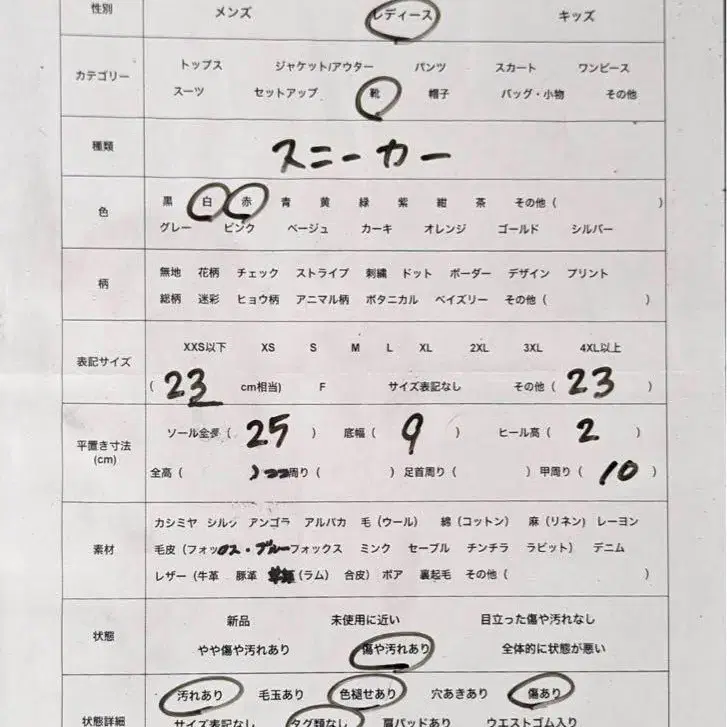 性別 メンズ レディース キッズ
カテゴリー トップス ジャケット/アウター パンツ スカート ワンピース
スーツ セットアップ 靴 帽子 バッグ・小物 その他
種類 スニーカー
色 黒 白 赤 青 黄 緑 紫 紺 茶 その他 ( )
グレー ピンク ベージュ カーキ オレンジ ゴールド シルバー
柄 無地 花柄 チェック ストライプ 刺繍 ドット ボーダー デザイン プリント
総柄 迷彩 ヒョウ柄 アニマル柄 ボタニカル ペイズリー その他 ( )
表記サイズ XXS以下 XS S M L XL 2XL 3XL 4XL以上
( 23 cm相当) F サイズ表記なし その他 ( 23 )
平置き寸法 (cm) ソール全長 ( 25 ) 底幅 ( 9 ) ヒール高 ( 2 )
全高 ( ) 周り ( ) 足首周り ( ) 甲周り ( 10 )
素材 カシミヤ シルク アンゴラ アルパカ 毛 (ウール) 綿 (コットン) 麻 (リネン) レーヨン
毛皮 (フォックス・ブルーフォックス ミンク セーブル チンチラ ラビット) デニム
レザー (牛革 豚革 (ラム) 合皮) ボア 裏起毛 その他 ( )
状態 新品 未使用に近い 目立った傷や汚れなし
やや傷や汚れあり 傷や汚れあり 全体的に状態が悪い
状態詳細 汚れあり 毛玉あり 色褪せあり 穴あきあり 傷あり
サイズ表記なし タグ類なし 肩パッドあり ウエストゴム入り